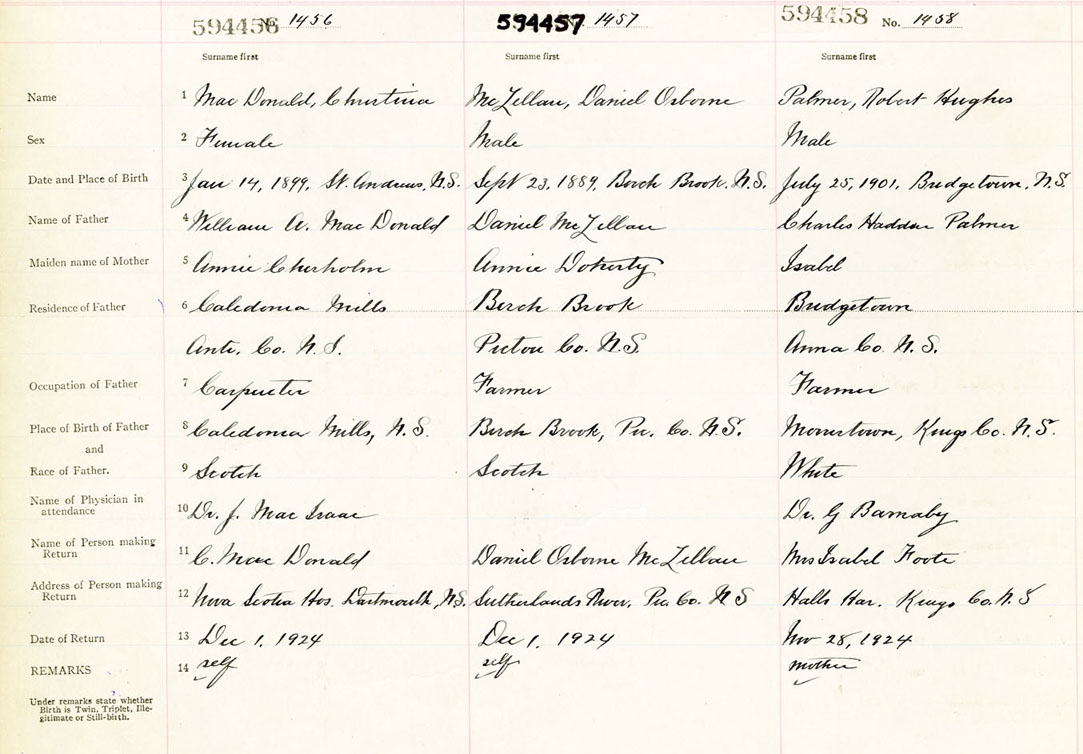 594456 No. 1456 594457 No. 1457 594458 No. 1458
Surname first Surname first Surname first
Name 1 Mac Donald, Christina McLellan, Daniel Osborne Palmer, Robert Hughes
Sex 2 Female Male Male
Date and Place of Birth 3 Jan 14, 1899, St. Andrews, N.S. Sept 23, 1889, Berch Brook, N.S. July 25, 1901, Bridgetown, N.S.
Name of Father 4 William A. Mac Donald Daniel McLellan Charles Haddon Palmer
Maiden name of Mother 5 Annie Chisholm Annie Doherty Isabel
Residence of Father 6 Caledonia Mills Berch Brook Bridgetown
Anti. Co. N.S. Pictou Co. N.S. Anna Co. N.S.
Occupation of Father 7 Carpenter Farmer Farmer
Place of Birth of Father 8 Caledonia Mills, N.S. Berch Brook, Pic. Co. N.S. Morristown, Kings Co. N.S.
and
Race of Father. 9 Scotch Scotch White
Name of Physician in
attendance 10 Dr. J. Mac Isaac Dr. G Barnaby
Name of Person making
Return 11 C. Mac Donald Daniel Osborne McLellan Mrs Isabel Foote
Address of Person making
Return 12 Nova Scotia Hos. Dartmouth, N.S. Sutherlands River, Pic. Co. N S Halls Har. Kings Co. N.S
Date of Return 13 Dec 1, 1924 Dec 1, 1924 Nov 28, 1924
REMARKS 14 self self mother
Under remarks state whether
Birth is Twin, Triplet, Ille-
gitimate or Still-birth.